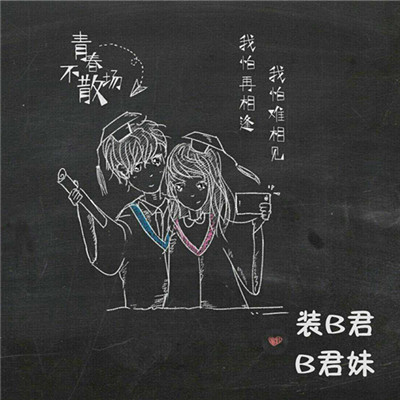 青春
不散场
我怕再相逢
我怕难相见
装B君
B君妹